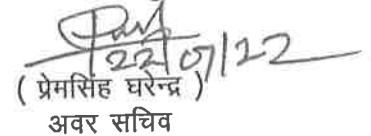 22/07/22
( प्रेमसिंह घरेन्द्र )
अवर सचिव